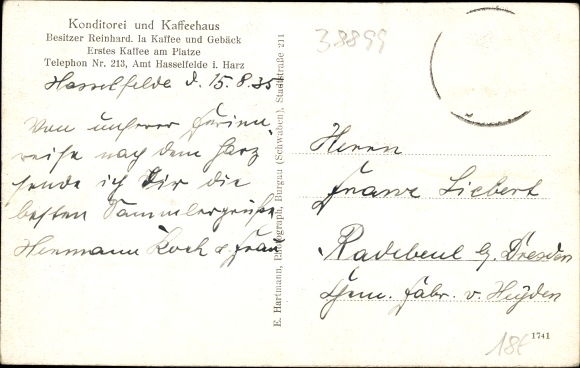 Konditorei und Kaffeehaus
Besitzer Reinhard. Ia Kaffee und Gebäck
Erstes Kaffee am Platze
Telephon Nr. 213, Amt Hasselfelde i. Harz
Hasselfelde d. 15.8.35
Von unserer Ferien-
reise nach dem Harz
sende ich Dir die
besten Sammlergrüße
Hermann Koch & Frau
E. Hartmann, Photograph, Burgau (Schwaben), Stadtstraße 211
38899
Herrn
Franz Liebert
Radebeul b/ Dresden
Chem. Fabr. v. Heyden
18€
1741